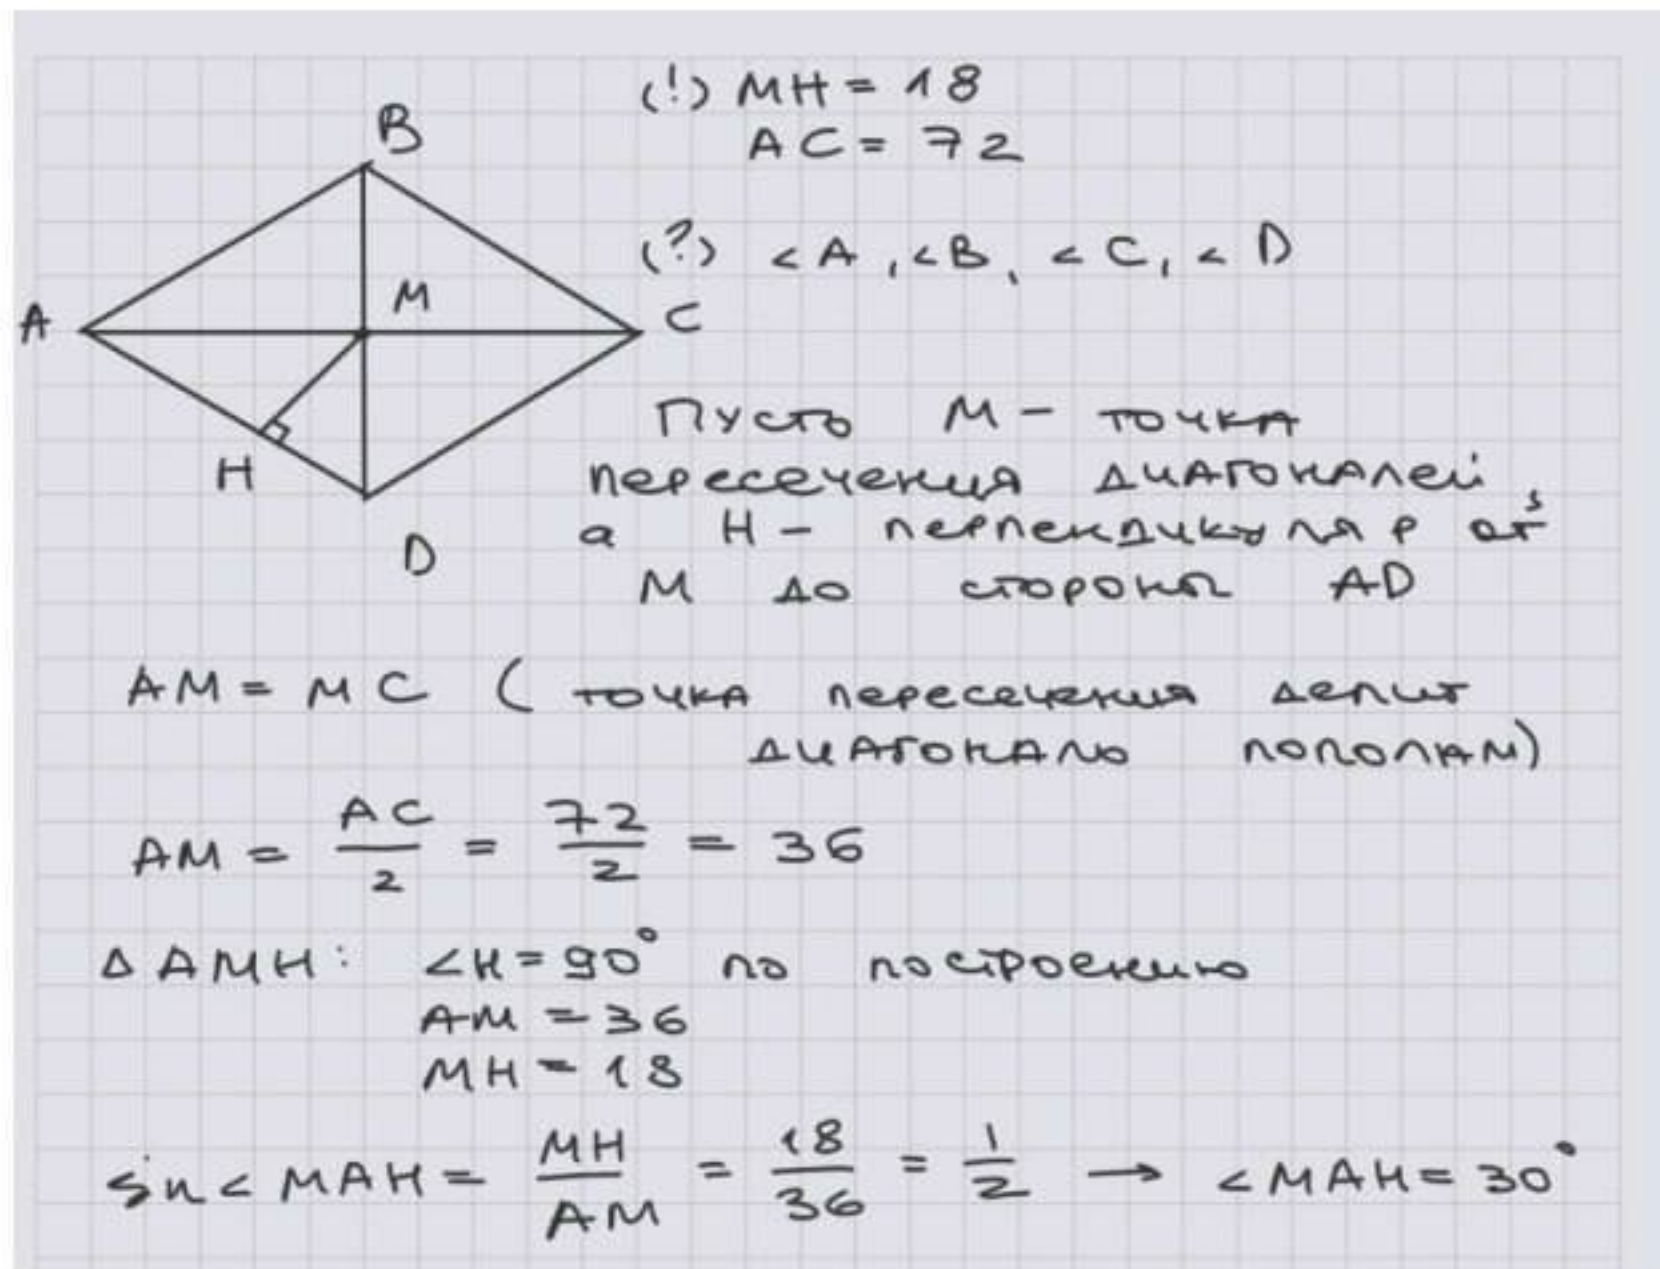 (!) MH = 18
AC = 72
B
(?) <A, <B, <C, <D
A
M
C
H
D
Пусть M - точка
пересечения диагоналей,
а H - перпендикуляр от
M до стороны AD
AM = MC (точка пересечения делит
диагональ пополам)
AM = AC/2 = 72/2 = 36
Δ AMH: <H = 90° по построению
AM = 36
MH = 18
sin < MAH = MH/AM = 18/36 = 1/2 → <MAH = 30°